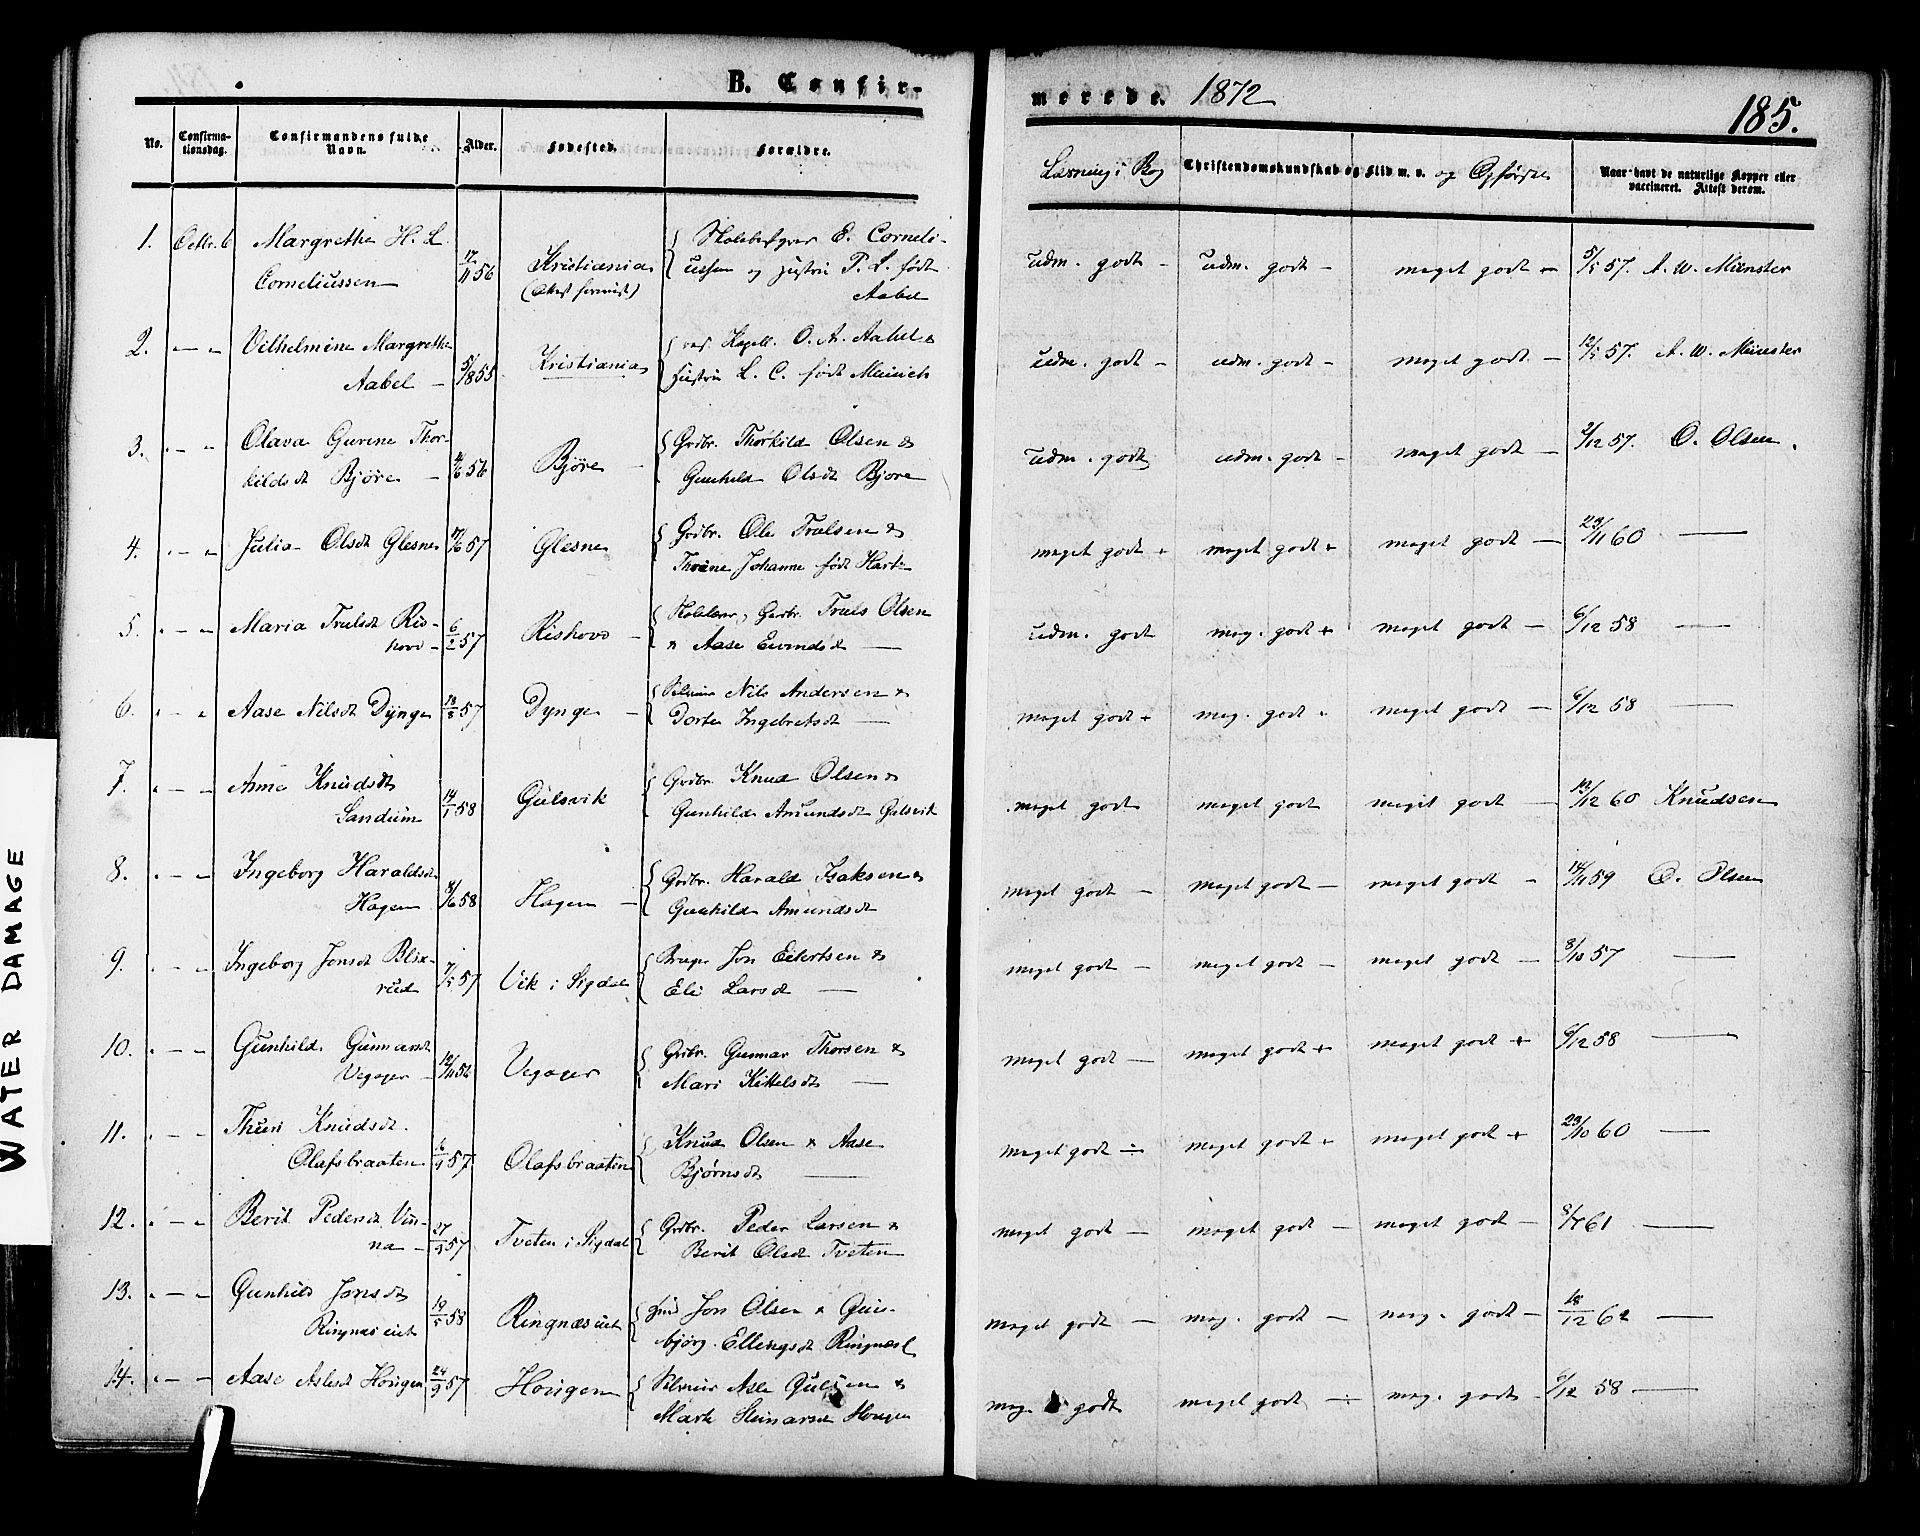 B. Confirmerede. 1872
185.
No. Confirmationsdag. Confirmandens fulde Navn. Alder. Fødested. Forældre. Læsning i Bog Christendomskundskab og Flid m. v. og Opførsel Naar havt de naturlige Kopper eller vaccineret. Attest derom.
1. Octbr. 6 Margrethe H. L. Corneliussen 12/11 56 Kristiania E. Corneliussen og Hustru P. L. født Aabel udm. godt - udm. godt - meget godt 5/5 57. A. W. Münster
2. " — " Vilhelmine Margrethe Aabel — 5/8 55 Kristiania res. Kapell. O. A. Aabel & Hustru L. C. født Munich udm. godt - udm. godt - meget godt — 12/5 57. A. W. Münster
3. " — " Olava Gurine Thorkildsdt Bjøre — 56 Bjøre Grdbr. Thorkild Olsen & Gunhild Olsdt Bjøre udm. godt udm. godt - meget godt — 2/12 57. O. Olsen
4. " — " Julia Olsdt Glesne 57 Glesne Grdbr. Ole Trulsen & Johanne født meget godt + meget godt + meget godt — 23/11 60 —
5. " — " Maria Trulsdt Rishovd 6/2 57 Rishovd Gardbr. Truls Olsen & Aase Eivindsdt — udm. godt meg. godt + meget godt — 6/12 58 —
6. " — " Aase Nilsdt Dynge 57 Dynge — Nils Andersen & Dorte Ingebretsdt — meget godt + meg. godt meget godt — 6/12 58 —
7. " — " Anne Knudsdt Sandum 14/1 58 Gulsvik Grdbr. Knud Olsen & Gunhild Amundsdt Gulsvik meget godt meget godt meget godt — 13/12 60 Knudsen
8. " — " Ingeborg Haraldsdt Hagen 8/6 58 Hagen — Grdbr. Harald Isaksen & Gunhild Amundsdt meget godt — meget godt — meget godt — 14/11 59 O. Olsen
9. " — " Ingeborg Jonsdt Blixrud 7/5 57 Vik i Sigdal Jon Eilertsen & Eli Larsdt — meget godt — meget godt — meget godt — 8/10 57 —
10. " — " Gunhild Gunnarsdt Vegager — 12/11 56 Vegager Grdbr. Gunnar Thorsen & Mari Kittelsdt — meget godt — meget godt + meget godt + 6/12 58 —
11. " — " Thuri Knudsdt. Olafsbraaten 57 Olafsbraaten Knud Olsen & Aase Bjørnsdt — meget godt ÷ meget godt + meget godt + 23/10 60 —
12. " — " Berit Pedersdt Vinna — 27/9 57 Tveten i Sigdal Grdbr. Peder Larsen & Berit Olsdt Tveten meget godt meget godt — meget godt — 8/7 61 —
13. " — " Gunhild Jonsdt Ringnæseiet 19/5 58 Ringnæseiet Jon Olsen & Gunbjørg Ellingsdt meget godt — meg. godt — meg. godt — 18/12 62 —
14. " — " Aase Aslesdt Hougen 24/9 57 Hougen Asle & Marte Steinarsdt Hougen meg. godt meget godt ÷ meg. godt — 6/12 58 —
WATER DAMAGE